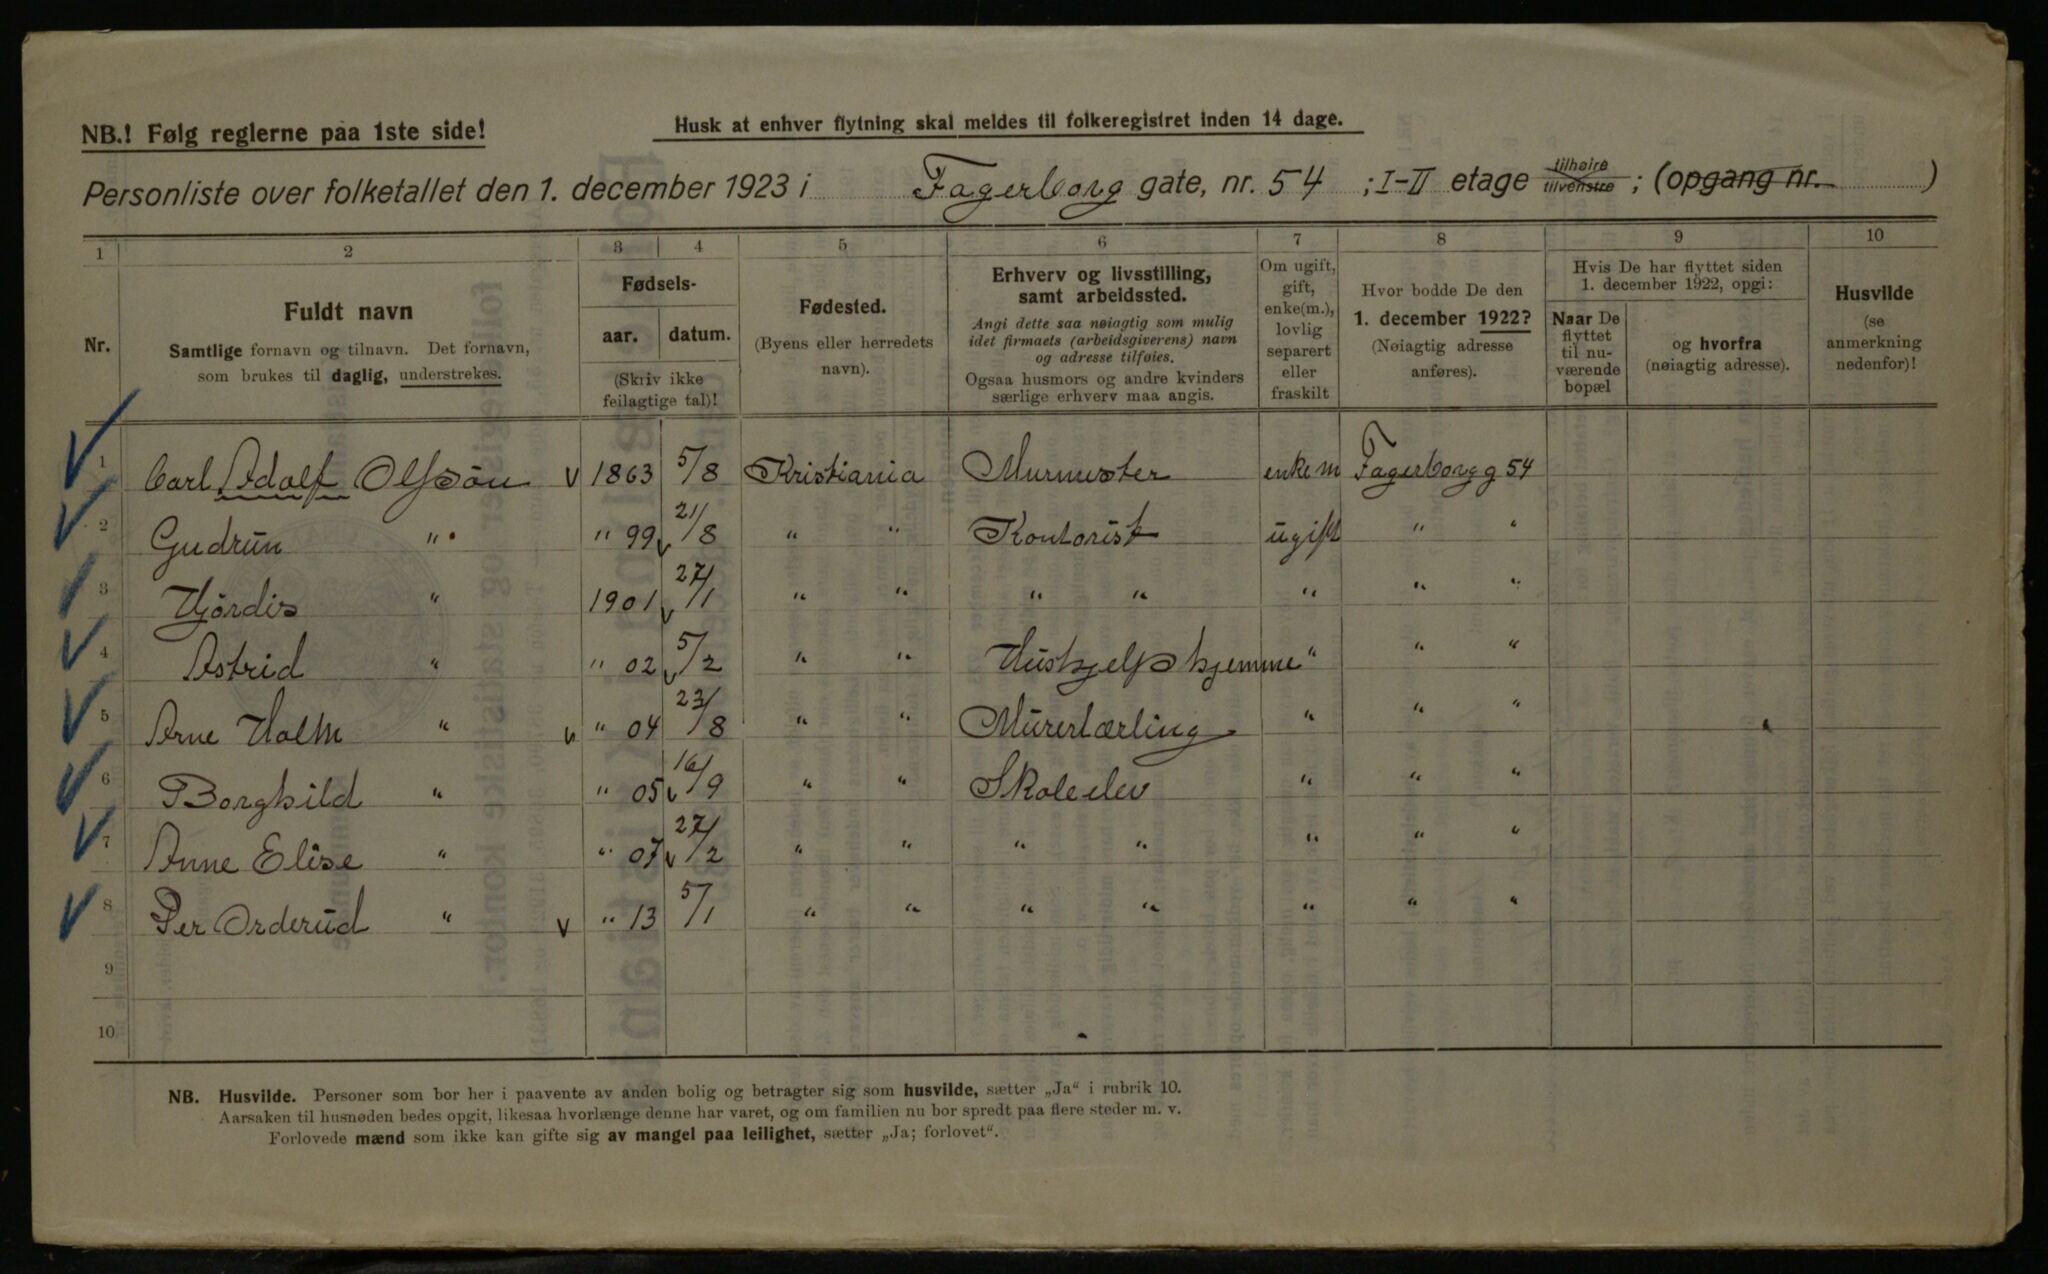 NB.! Følg reglerne paa 1ste side!
Husk at enhver flytning skal meldes til folkeregistret inden 14 dage.
Personliste over folketallet den 1. december 1923 i Fagerborg gate, nr. 54 ; I-II etage tilhøire tilvenstre ; (opgang nr. )
1 2 3 4 5 6 7 8 9 10
Nr.
Fuldt navn
Samtlige fornavn og tilnavn. Det fornavn,
som brukes til daglig, understrekes.
Fødsels-
aar. datum.
(Skriv ikke
feilagtige tal)!
Fødested.
(Byens eller herredets
navn).
Erhverv og livsstilling,
samt arbeidssted.
Angi dette saa nøiagtig som mulig
idet firmaets (arbeidsgiverens) navn
og adresse tilføies.
Ogsaa husmors og andre kvinders
særlige erhverv maa angis.
Om ugift,
gift,
enke(m.),
lovlig
separert
eller
fraskilt
Hvor bodde De den
1. december 1922?
(Nøiagtig adresse
anføres).
Hvis De har flyttet siden
1. december 1922, opgi:
Naar De
flyttet
til nu-
værende
bopæl
og hvorfra
(nøiagtig adresse).
Husvilde
(se
anmerkning
nedenfor)!
1 Carl Adolf Olsson v 1863 5/8 Kristiania Murmester enkem Fagerborgg 54
2 Gudrun " " 99 v 21/8 " " Kontorist ugift " "
3 Hjördis " 1901 v 27/1 " " " " " " "
4 Astrid " " 02 v 5/2 " " Huskjelp hjemme " " "
5 Arne Holm " v " 04 23/8 " " Murerlærling " " "
6 Borghild " " 05 v 16/9 " " Skoleelev " " "
7 Anne Elise " " 07 v 27/2 " " " " " " "
8 Per Orderud " v " 13 5/1 " " " " " " "
9
10
NB. Husvilde. Personer som bor her i paavente av anden bolig og betragter sig som husvilde, sætter „Ja“ i rubrik 10.
Aarsaken til husnøden bedes opgit, likesaa hvorlænge denne har varet, og om familien nu bor spredt paa flere steder m. v.
Forlovede mænd som ikke kan gifte sig av mangel paa leilighet, sætter „Ja; forlovet“.